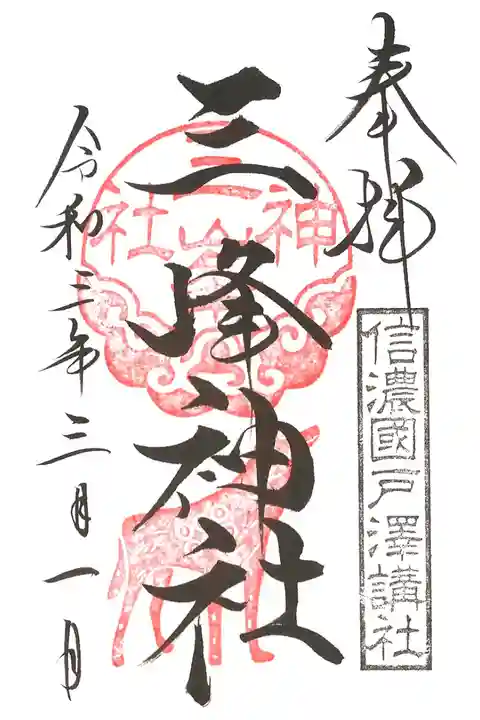 奉拝
信濃國戸澤講社
三峰神社
三峰神社
令和三年三月一日